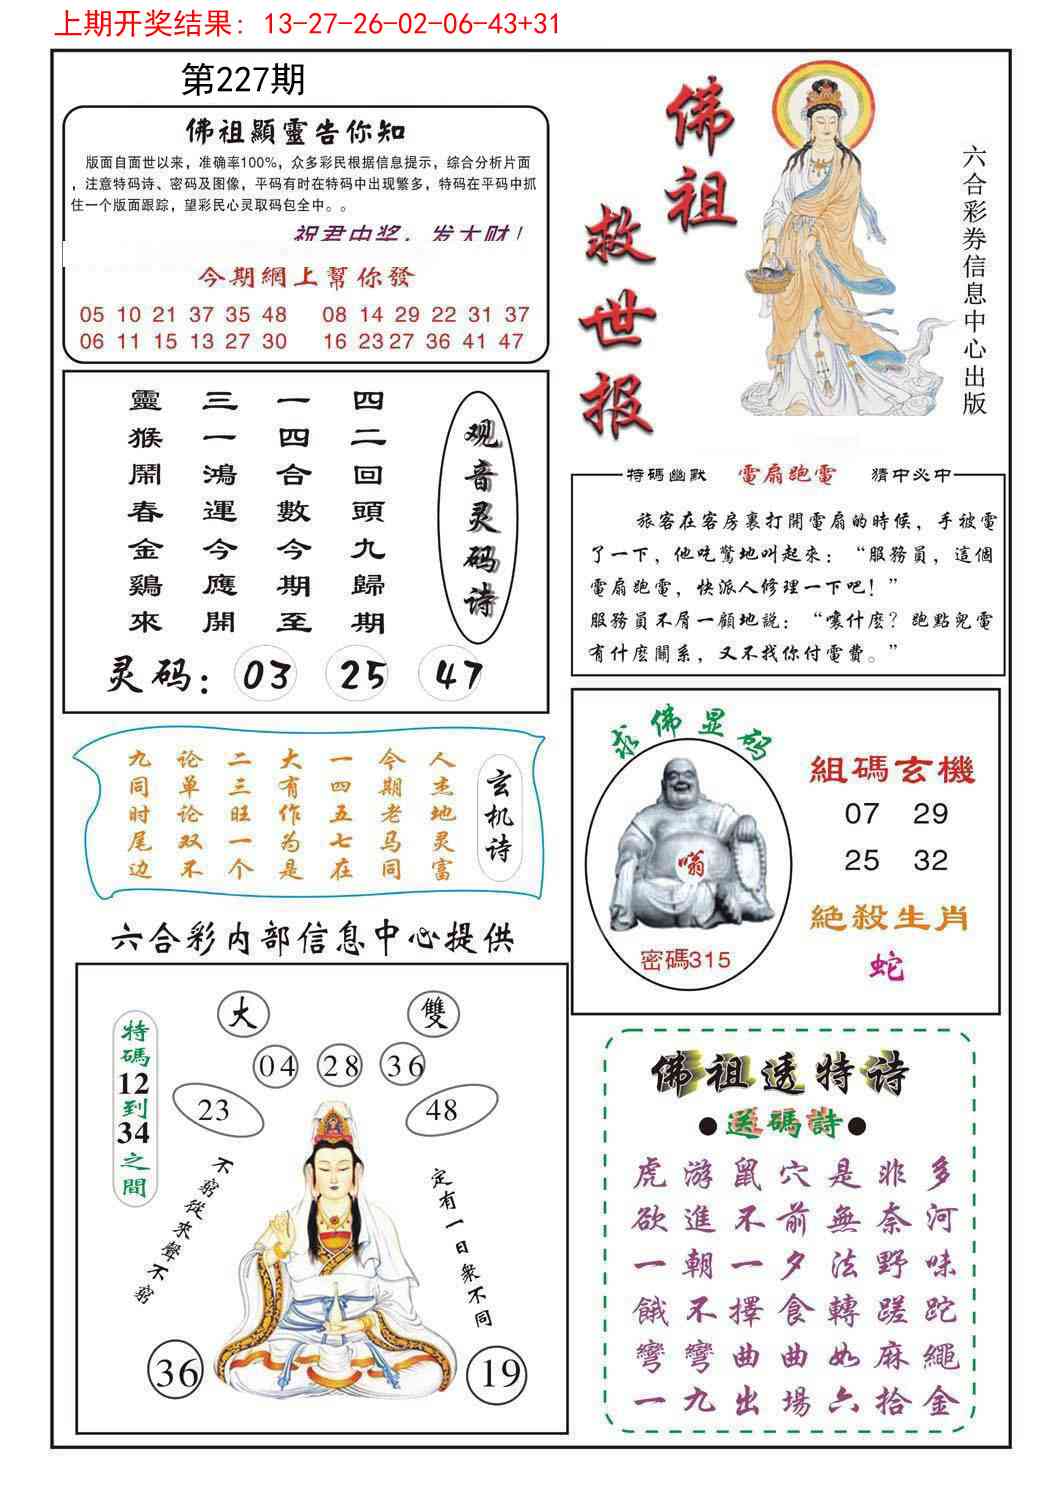 上期开奖结果：13-27-26-02-06-43+31
第227期
佛祖顯靈告你知
版面自面世以来，准确率100%，众多彩民根据信息提示，综合分析片面
，注意特码诗、密码及图像，平码有时在特码中出现繁多，特码在平码中抓
住一个版面跟踪，望彩民心灵取码包全中。。
祝君中奖，发大财！
今期網上幫你發
05 10 21 37 35 48 08 14 29 22 31 37
06 11 15 13 27 30 16 23 27 36 41 47
佛祖
救世报
六合彩券信息中心出版
靈猴鬧春金鷄來
三一鴻運今應開
一四合數今期至
四二回頭九歸期
观音灵码诗
灵码：03 25 47
特碼幽默 電扇跑電 猜中必中
旅客在客房裏打開電扇的時候，手被電
了一下，他吃驚地叫起來：“服務員，這個
電扇跑電，快派人修理一下吧！”
服務員不屑一顧地説：“嚷什麽？跑點兒電
有什麽關系，又不找你付電費。”
九同时尾边
论单论双不
二三旺一个
大有作为是
一四五七在
今期老马同
人杰地灵富
玄机诗
求佛显码
密碼315
組碼玄機
07 29
25 32
絶殺生肖
蛇
六合彩内部信息中心提供
大 雙
04 28 36
23 48
特碼12到34之間
不窮從來聲不窮
定有一日衆不同
36 19
佛祖透特诗
●送碼詩●
虎游鼠穴是非多
欲進不前無奈河
一朝一夕法野味
餓不擇食轉蹉跎
彎彎曲曲如麻繩
一九出場六拾金